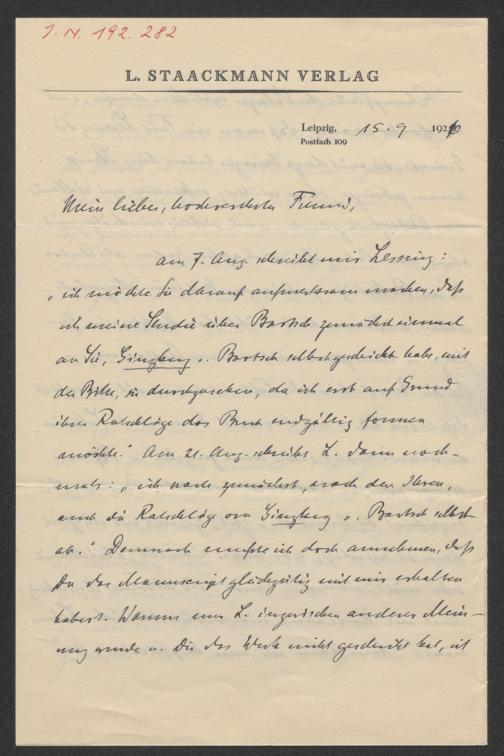 J. N. 192.282
L. STAACKMANN VERLAG
Leipzig, 15.9 192
Postfach 109
Mein lieber, hochverehrter Freund,
am 7. Aug. schreibt mir Lessing:
„ich möchte Sie darauf aufmerksam machen, daß
ich meine Studie über Bartsch zunächst einmal
an Sie, Ginzkey u. Bartsch selbst geschickt habe, mit
der Bitte, sie durchzusehen, da ich erst auf Grund
ihrer Ratschläge das Buch endgültig formen
möchte." Am 21. Aug. schreibt L. dann noch-
mals: „ich warte zunächst, nach den Ihren,
auch die Ratschläge von Ginzkey u. Bartsch selbst
ab." Demnach mußte ich doch annehmen, daß
Du das Manuscript gleichzeitig mit mir erhalten
habest. Warum nun L. inzwischen anderer Mein-
ung wurde u. Dir das Werk nicht geschickt hat, ist